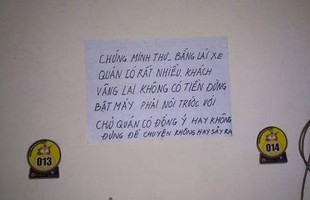 CHỨNG MINH THƯ_ BẰNG LÁI XE
QUÁN CÓ RẤT NHIỀU. KHÁCH
VÃNG LAI KHÔNG CÓ TIỀN ĐỪNG
BẬT MÁY. PHẢI NÓI TRƯỚC VỚI
CHỦ QUÁN CÓ ĐỒNG Ý HAY KHÔNG
ĐỪNG ĐỂ CHUYỆN KHÔNG HAY SẢY RA
013
014